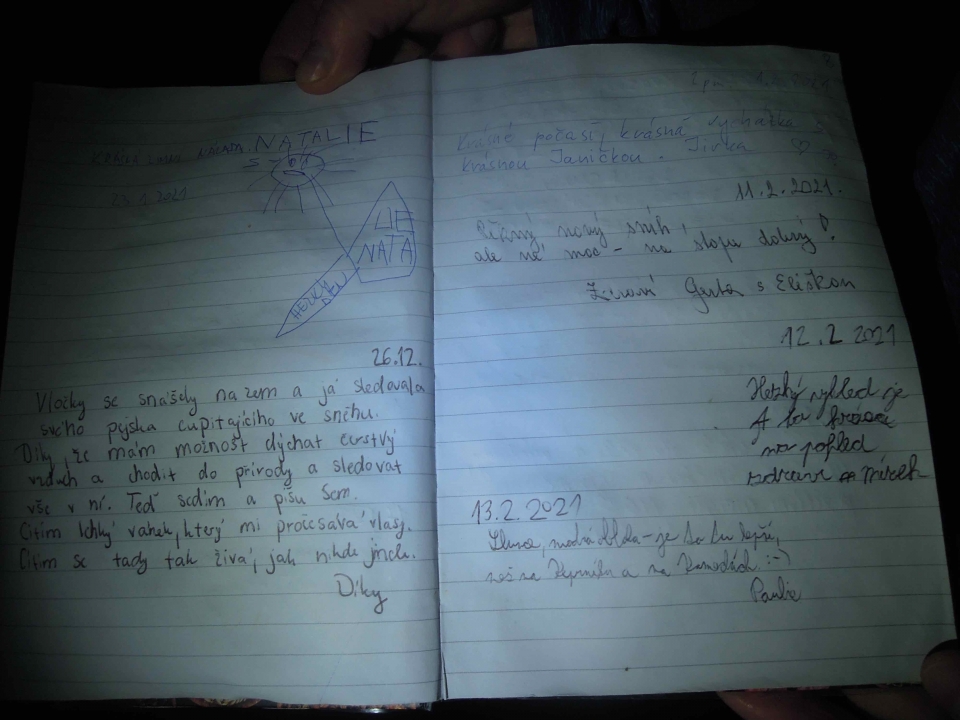 KRÁSNÁ NÁLADA NATALIE
23.1.2021
LIE
NATA
HEZKÝ
DEN
26.12.
Vločky se snášely na zem a já sledovala
svého pejska cupitajícího ve sněhu.
Díky, že mám možnost dýchat čerstvý
vzduch a chodit do přírody a sledovat
vše v ní. Teď sedím a píšu sem.
Cítím lehký vánek, který mi pročesává vlasy.
Cítím se tady tak živá, jak nikde jinde.
Díky
Krásné počasí, krásná vycházka
krásnou Janičkou. Jirka ♡
11.2.2021.
nový sníh,
ale ne moc - na stopu dobrý!
Gerta s Eliškou
12.2 2021
Hezký výhled je
A to
na pohled
zdraví Mirek
13.2.2021
Slunce, modrá obloha - je to tu lepší,
než na Keprníku a na :-)
Pavlie